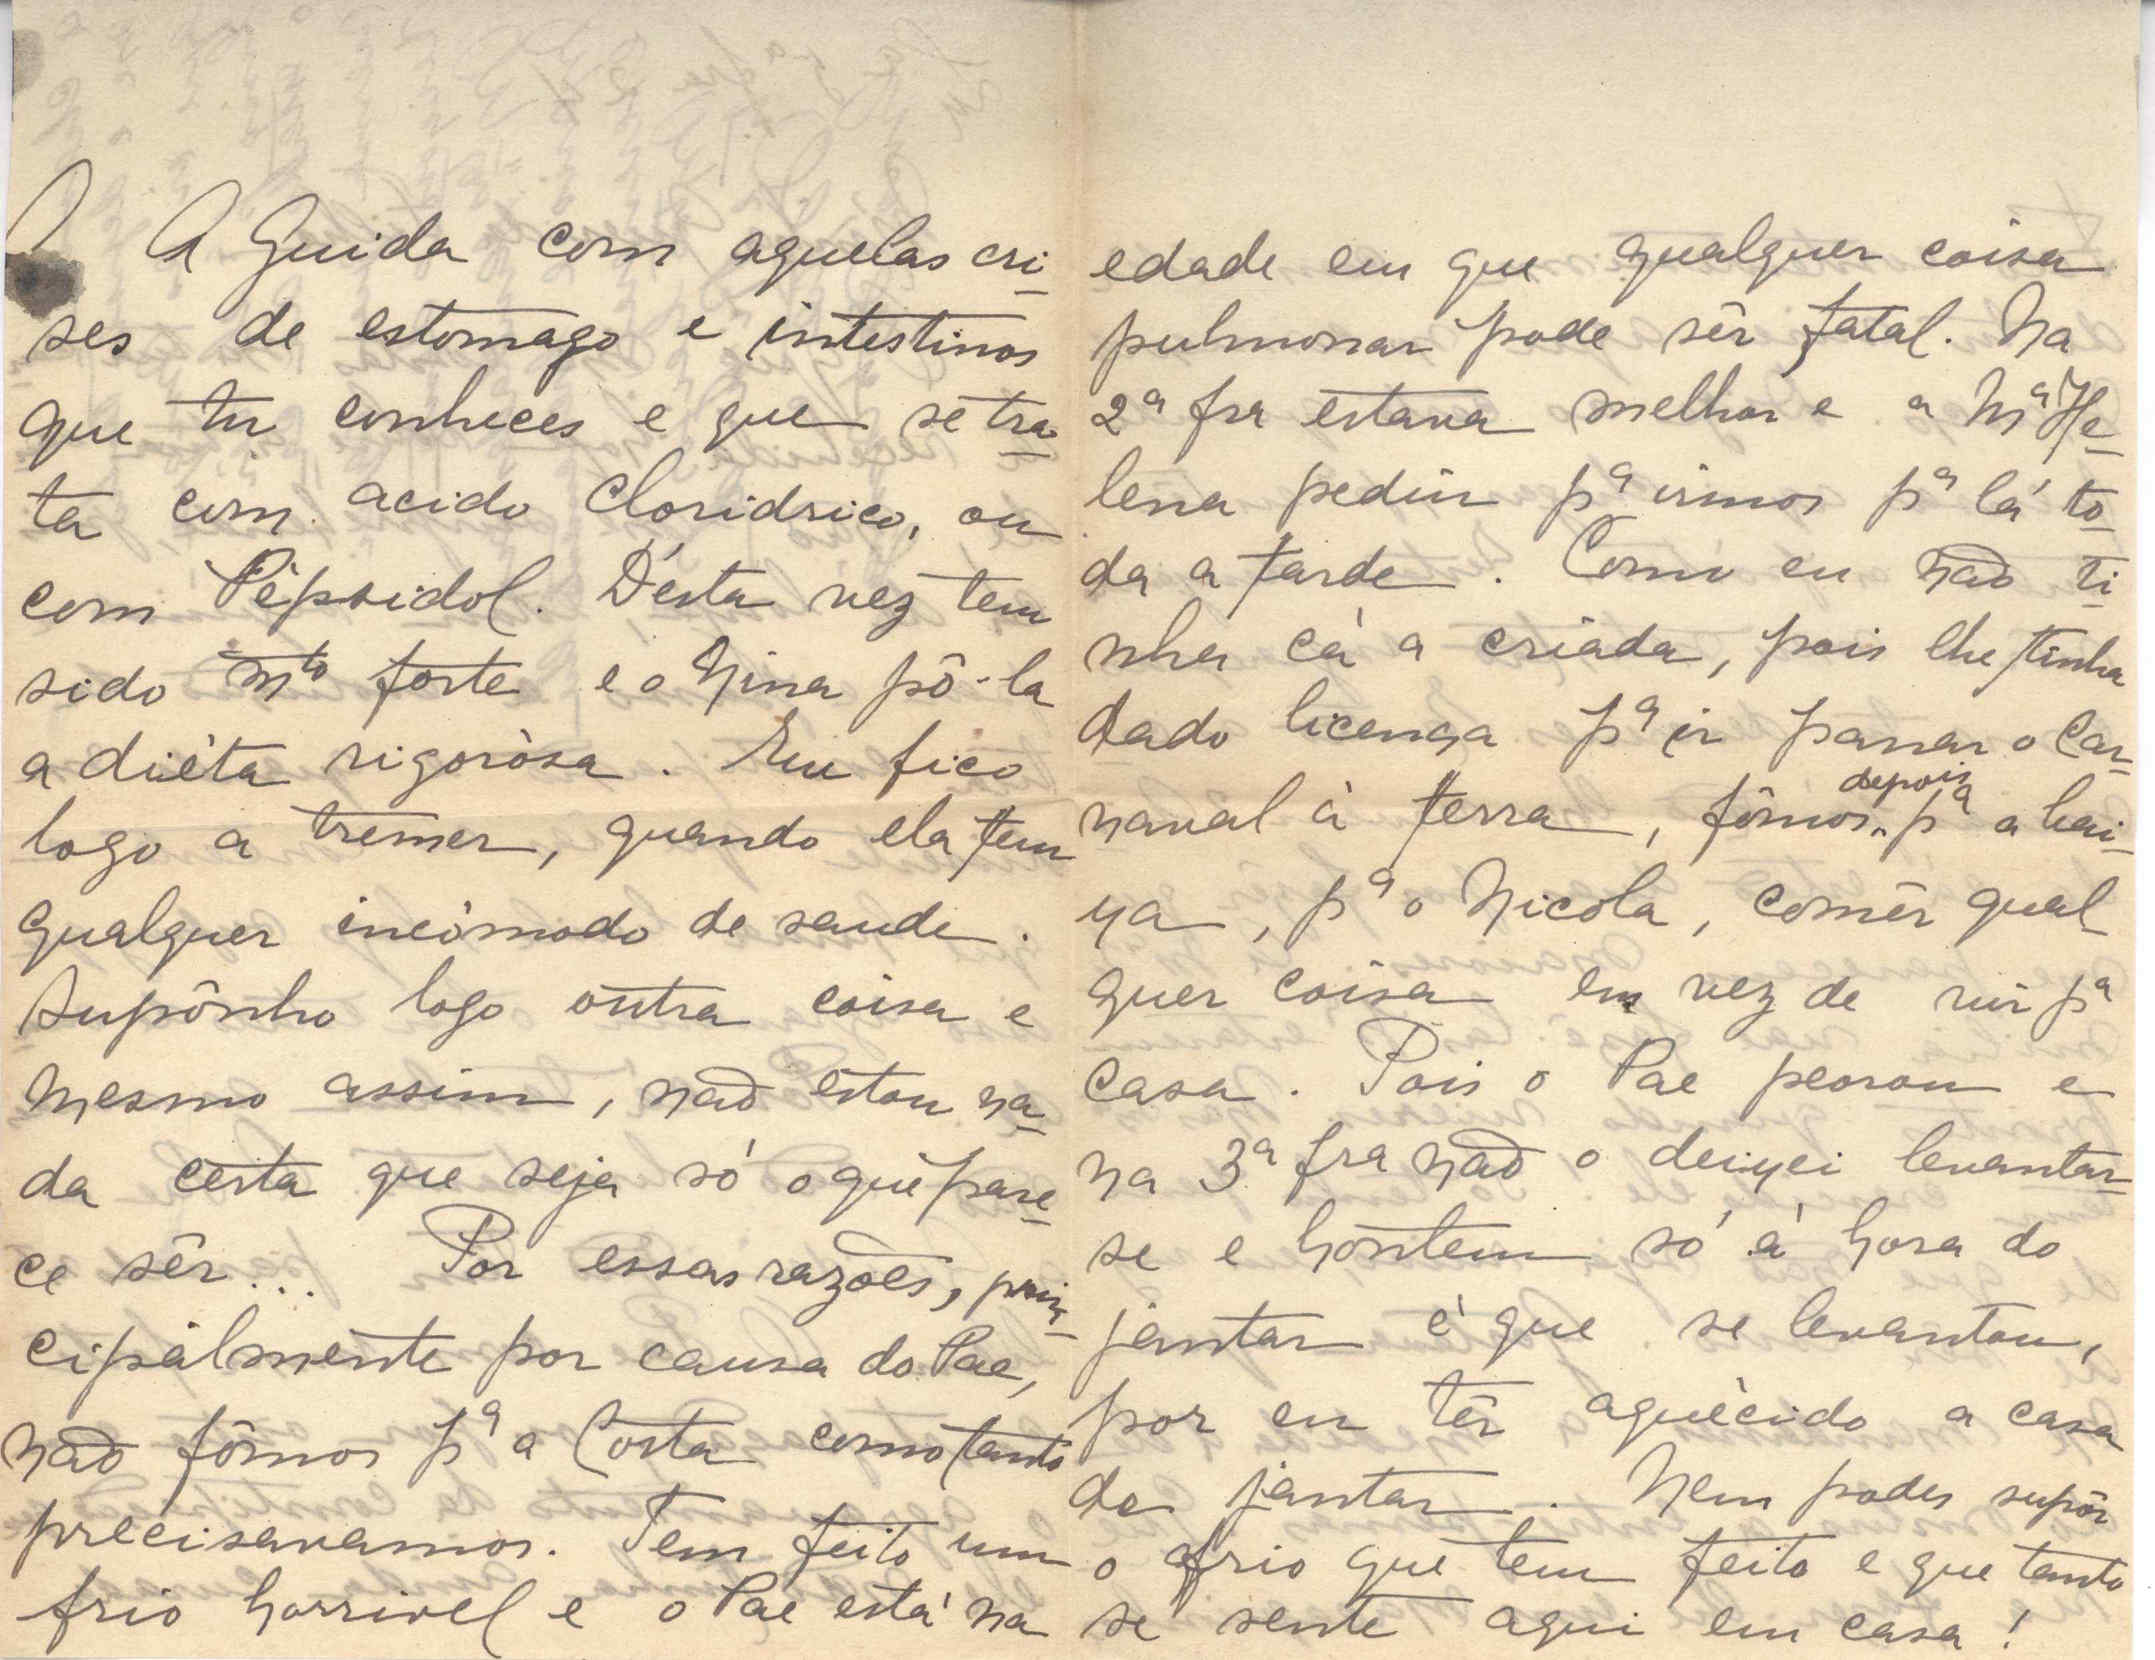 A Guida com aquelas cri-
ses de estomago e intestinos
que tu conheces e que se tra-
ta com acido cloridrico, ou
com Pèpsidol. D'esta vez tem
sido mto forte e o Nina pô-la
a dièta rigoròsa. Eu fico
logo a tremer, quando ela tem
qualquer incòmodo de saude.
Supônho logo outra coisa e
mesmo assim, não estou na-
da certa que seja só o que pare-
ce sêr... Por essas razões, prin-
cipálmente por causa do Pae,
não fômos pª a Costa como tanto
precisavamos. Tem feito um
frio horrivel e o Pae está na
edade em que qualquer coisa
pulmonar pode sêr fatal. Na
2ª fra estava melhor e a Mª He-
lena pediu pª irmos pª lá to-
da a tarde. Como eu não ti-
nha cá a criada, pois lhe tinha
dado licença pª ir passar o Car-
naval à terra, fômos depois pª a bai-
xa, pª o Nicola, comêr qual-
quer coisa em vez de vir pª
casa. Pois o Pae peorou e
na 3ª fra não o deixei levantar-
se e hontem só à hora do
jantar è que se levantou,
por eu têr aquècido a casa
de jantar. Nem podes supôr
o frio que tem feito e que tanto
se sente aqui em casa!